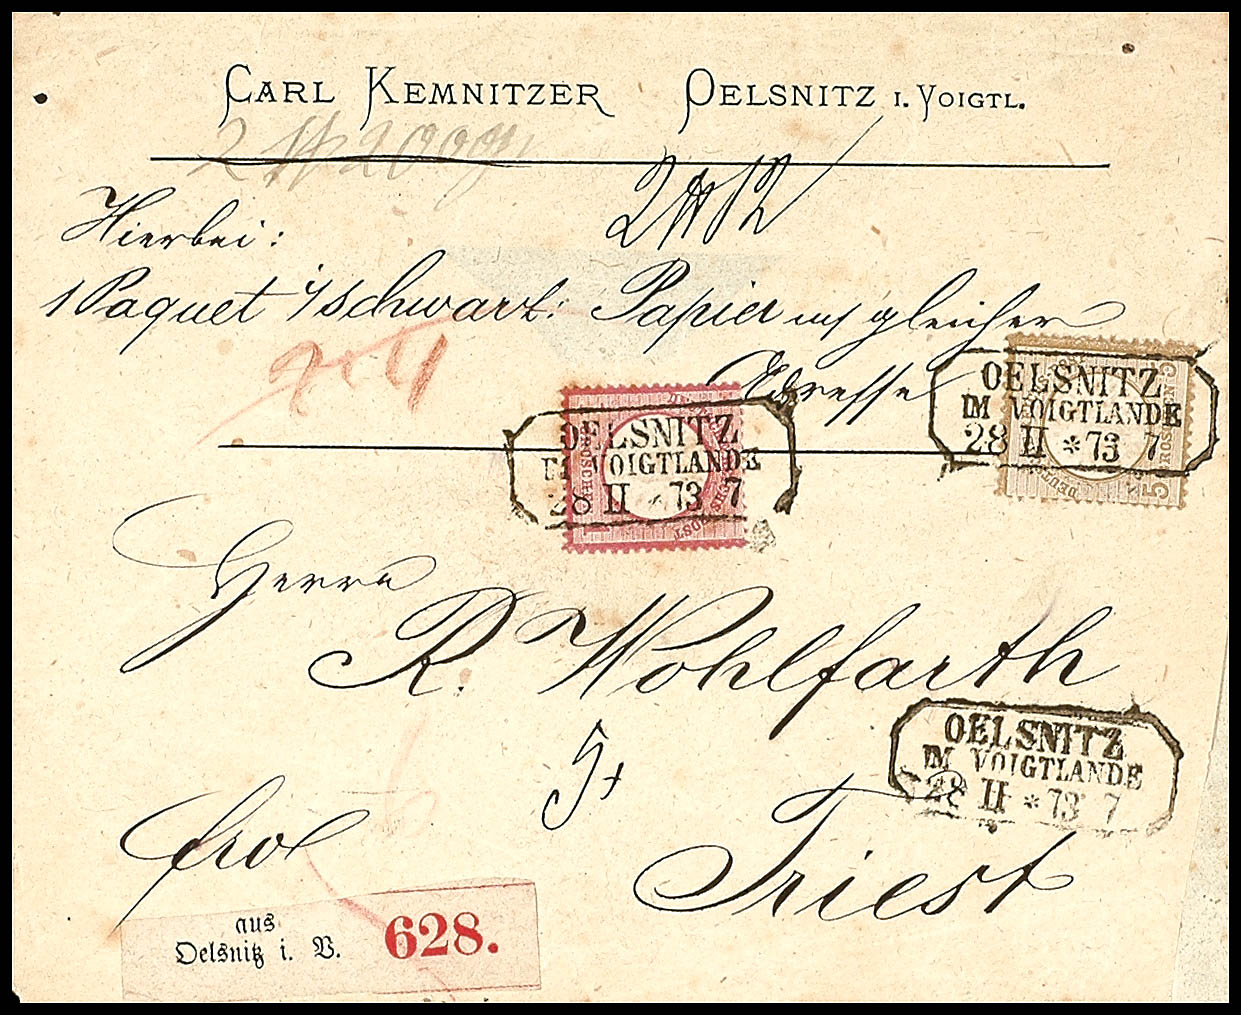 CARL KEMNITZER OELSNITZ I. VOIGTL.
Hierbei:
1 Paquet i/schwarz: Papier mit gleicher
Adresse
OELSNITZ
IM VOIGTLANDE
28 II * 73 7
OELSNITZ
IM VOIGTLANDE
28 II * 73 7
5
Herrn
R. Wohlfarth
OELSNITZ
IM VOIGTLANDE
28 II * 73 7
frco
Triest
aus
Oelsnitz i. V.
628.